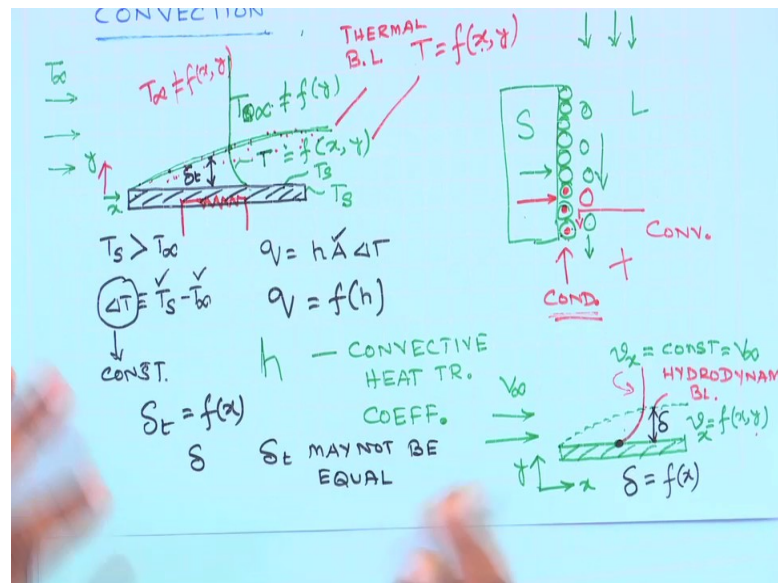 CONVECTION
THERMAL
B.L T = f(x, y)
T∞
T∞ ≠ f(x, y)
T∞ ≠ f(y)
T = f(x, y)
δt
y
x
Ts
Ts
Ts > T∞
q = hA ΔT
ΔT = Ts - T∞
q = f(h)
CONST.
h — CONVECTIVE
HEAT TR.
COEFF.
δt = f(x)
δ δt MAY NOT BE
EQUAL
S
L
CONV.
COND.
vx = CONST = V∞
HYDRODYNAM
BL.
V∞
δ
vx = f(x, y)
y
x
δ = f(x)